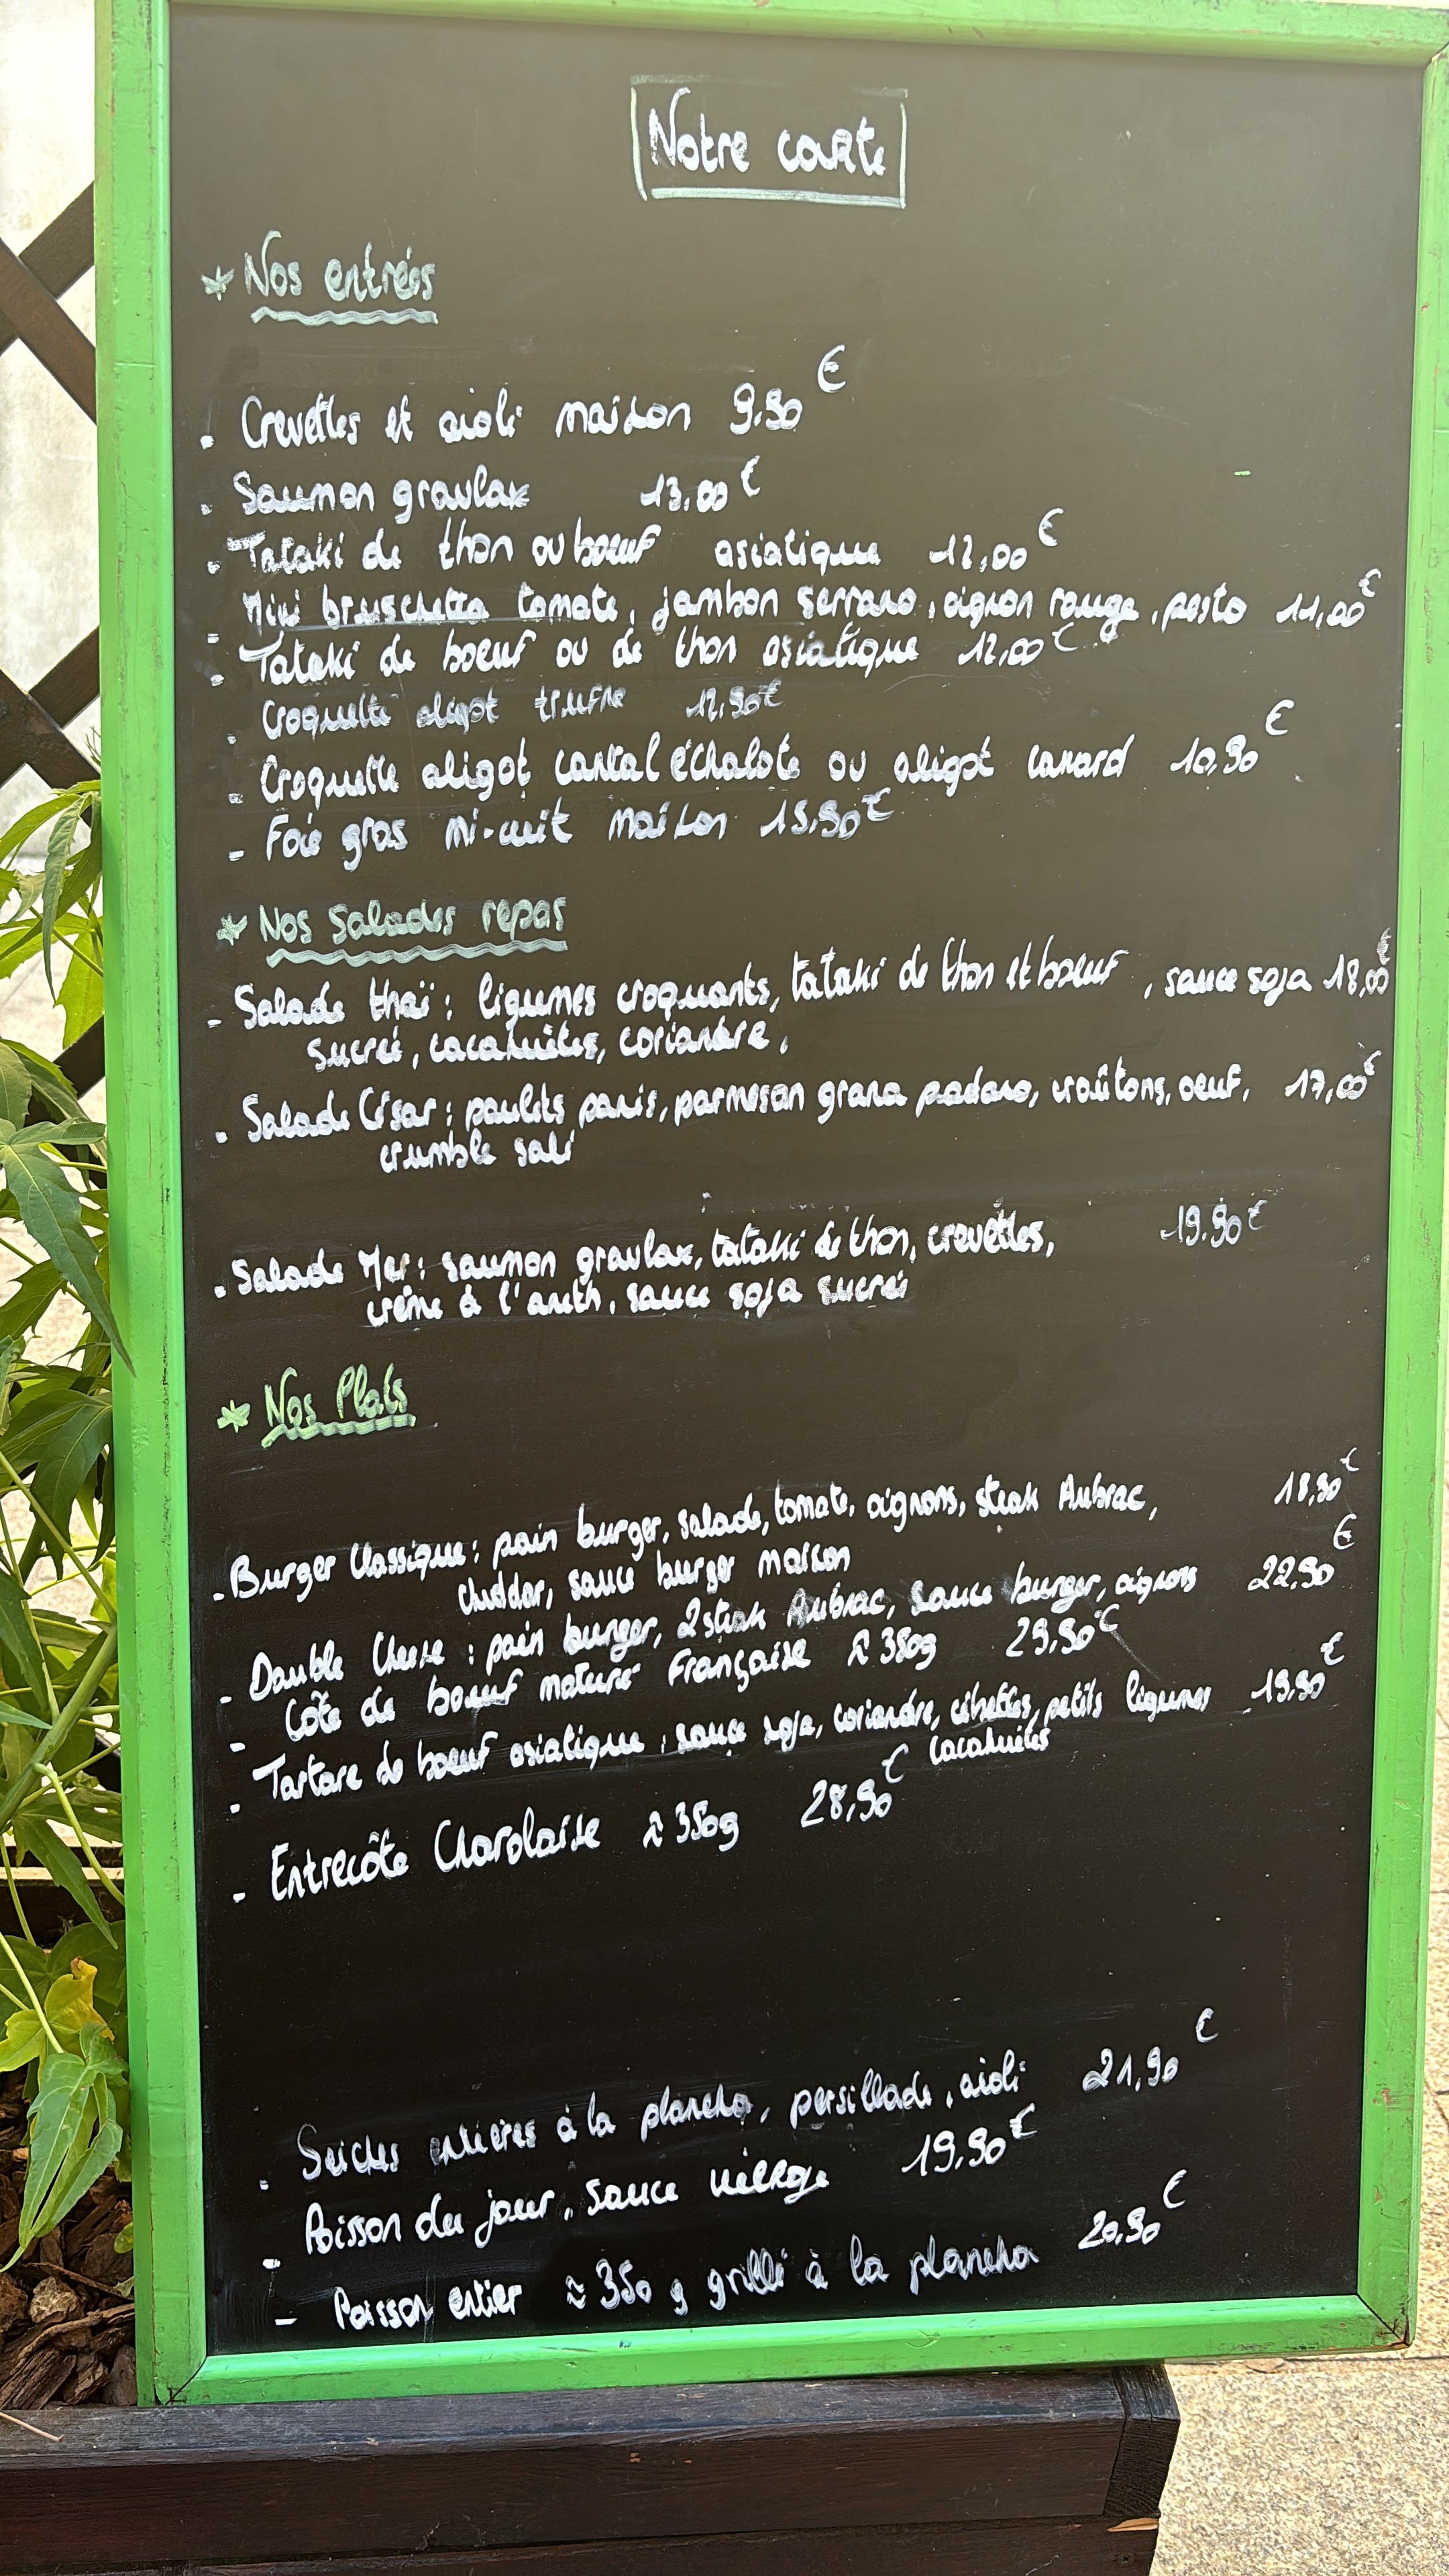 Notre carte
* Nos entrées
. Crevettes et aioli maison 9.90 €
. Saumon gravlax 13.00 €
. Tataki de thon ou boeuf asiatique 12,00 €
- Mini bruschetta tomate, jambon serrano, oignon rouge, pesto 11,00 €
- Tataki de boeuf ou de thon asiatique 12,00 €
- Croquette aligot truffe 12,90 €
- Croquette aligot cantal échalote ou aligot canard 10,90 €
- Foie gras mi-cuit maison 15,90 €
* Nos Salades repas
- Salade thaï : légumes croquants, tataki de thon et boeuf, sauce soja 18,00 €
sucrée, cacahuètes, coriandre,
. Salade César : poulets panés, parmesan grana padano, croûtons, oeuf, 17,00 €
crumble salé
. Salade Mer : saumon gravlax, tataki de thon, crevettes, 19.90 €
crème à l'aneth, sauce soja sucrée
* Nos Plats
- Burger Classique : pain burger, salade, tomate, oignons, steak Aubrac, 18,90 €
cheddar, sauce burger maison
- Double Cheese : pain burger, 2 steak Aubrac, sauce burger, oignons 22,90 €
- Côte de boeuf maturé Française ≈ 350g 29,90 €
. Tartare de boeuf asiatique, sauce soja, coriandre, cibettes, petits légumes 19,90 €
cacahuètes
- Entrecôte Charolaise ≈ 350g 28,90 €
. Seiches entières à la plancha, persillade, aioli 21,90 €
- Poisson du jour, sauce vierge 19,90 €
- Poisson entier ≈ 350 g grillé à la plancha 20,90 €